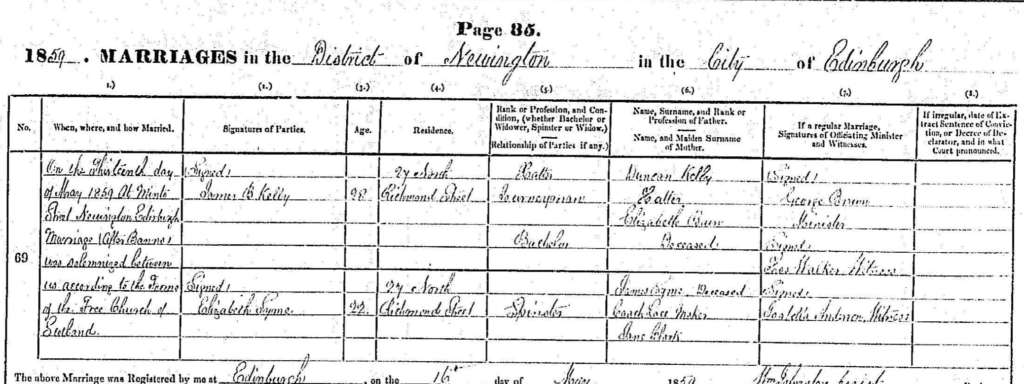 Page 85.
1859. MARRIAGES in the District of Newington in the City of Edinburgh
(1.) (2.) (3.) (4.) (5.) (6.) (7.) (8.)
No. When, where, and how Married. Signatures of Parties. Age. Residence. Rank or Profession, and Condition, (whether Bachelor or Widower, Spinster or Widow.) Relationship of Parties (if any.) Name, Surname, and Rank or Profession of Father. Name, and Maiden Surname of Mother. If a regular Marriage, Signatures of Officiating Minister and Witnesses. If irregular, date of Extract Sentence of Conviction, or Decree of Declarator, and in what Court pronounced.
On the Thirteenth day Signed 27 North Hatter Duncan Kelby Signed
of May 1859 At Minto James B. Kelby 28 Richmond Street Journeyman Hatter George
Street Newington Edinburgh Elizabeth Minister
Marriage (After Banns) Bachelor Deceased Signed
69
was solemnized between Walker Witness
us according to the Forms Signed 27 North James Syme, Deceased Signed
of the Free Church of Elizabeth Syme 22 Richmond Street Spinster Coach Lace Maker Anderson, Witness
Scotland. Jane Clark
The above Marriage was Registered by me at Edinburgh, on the 16th day of May 1859